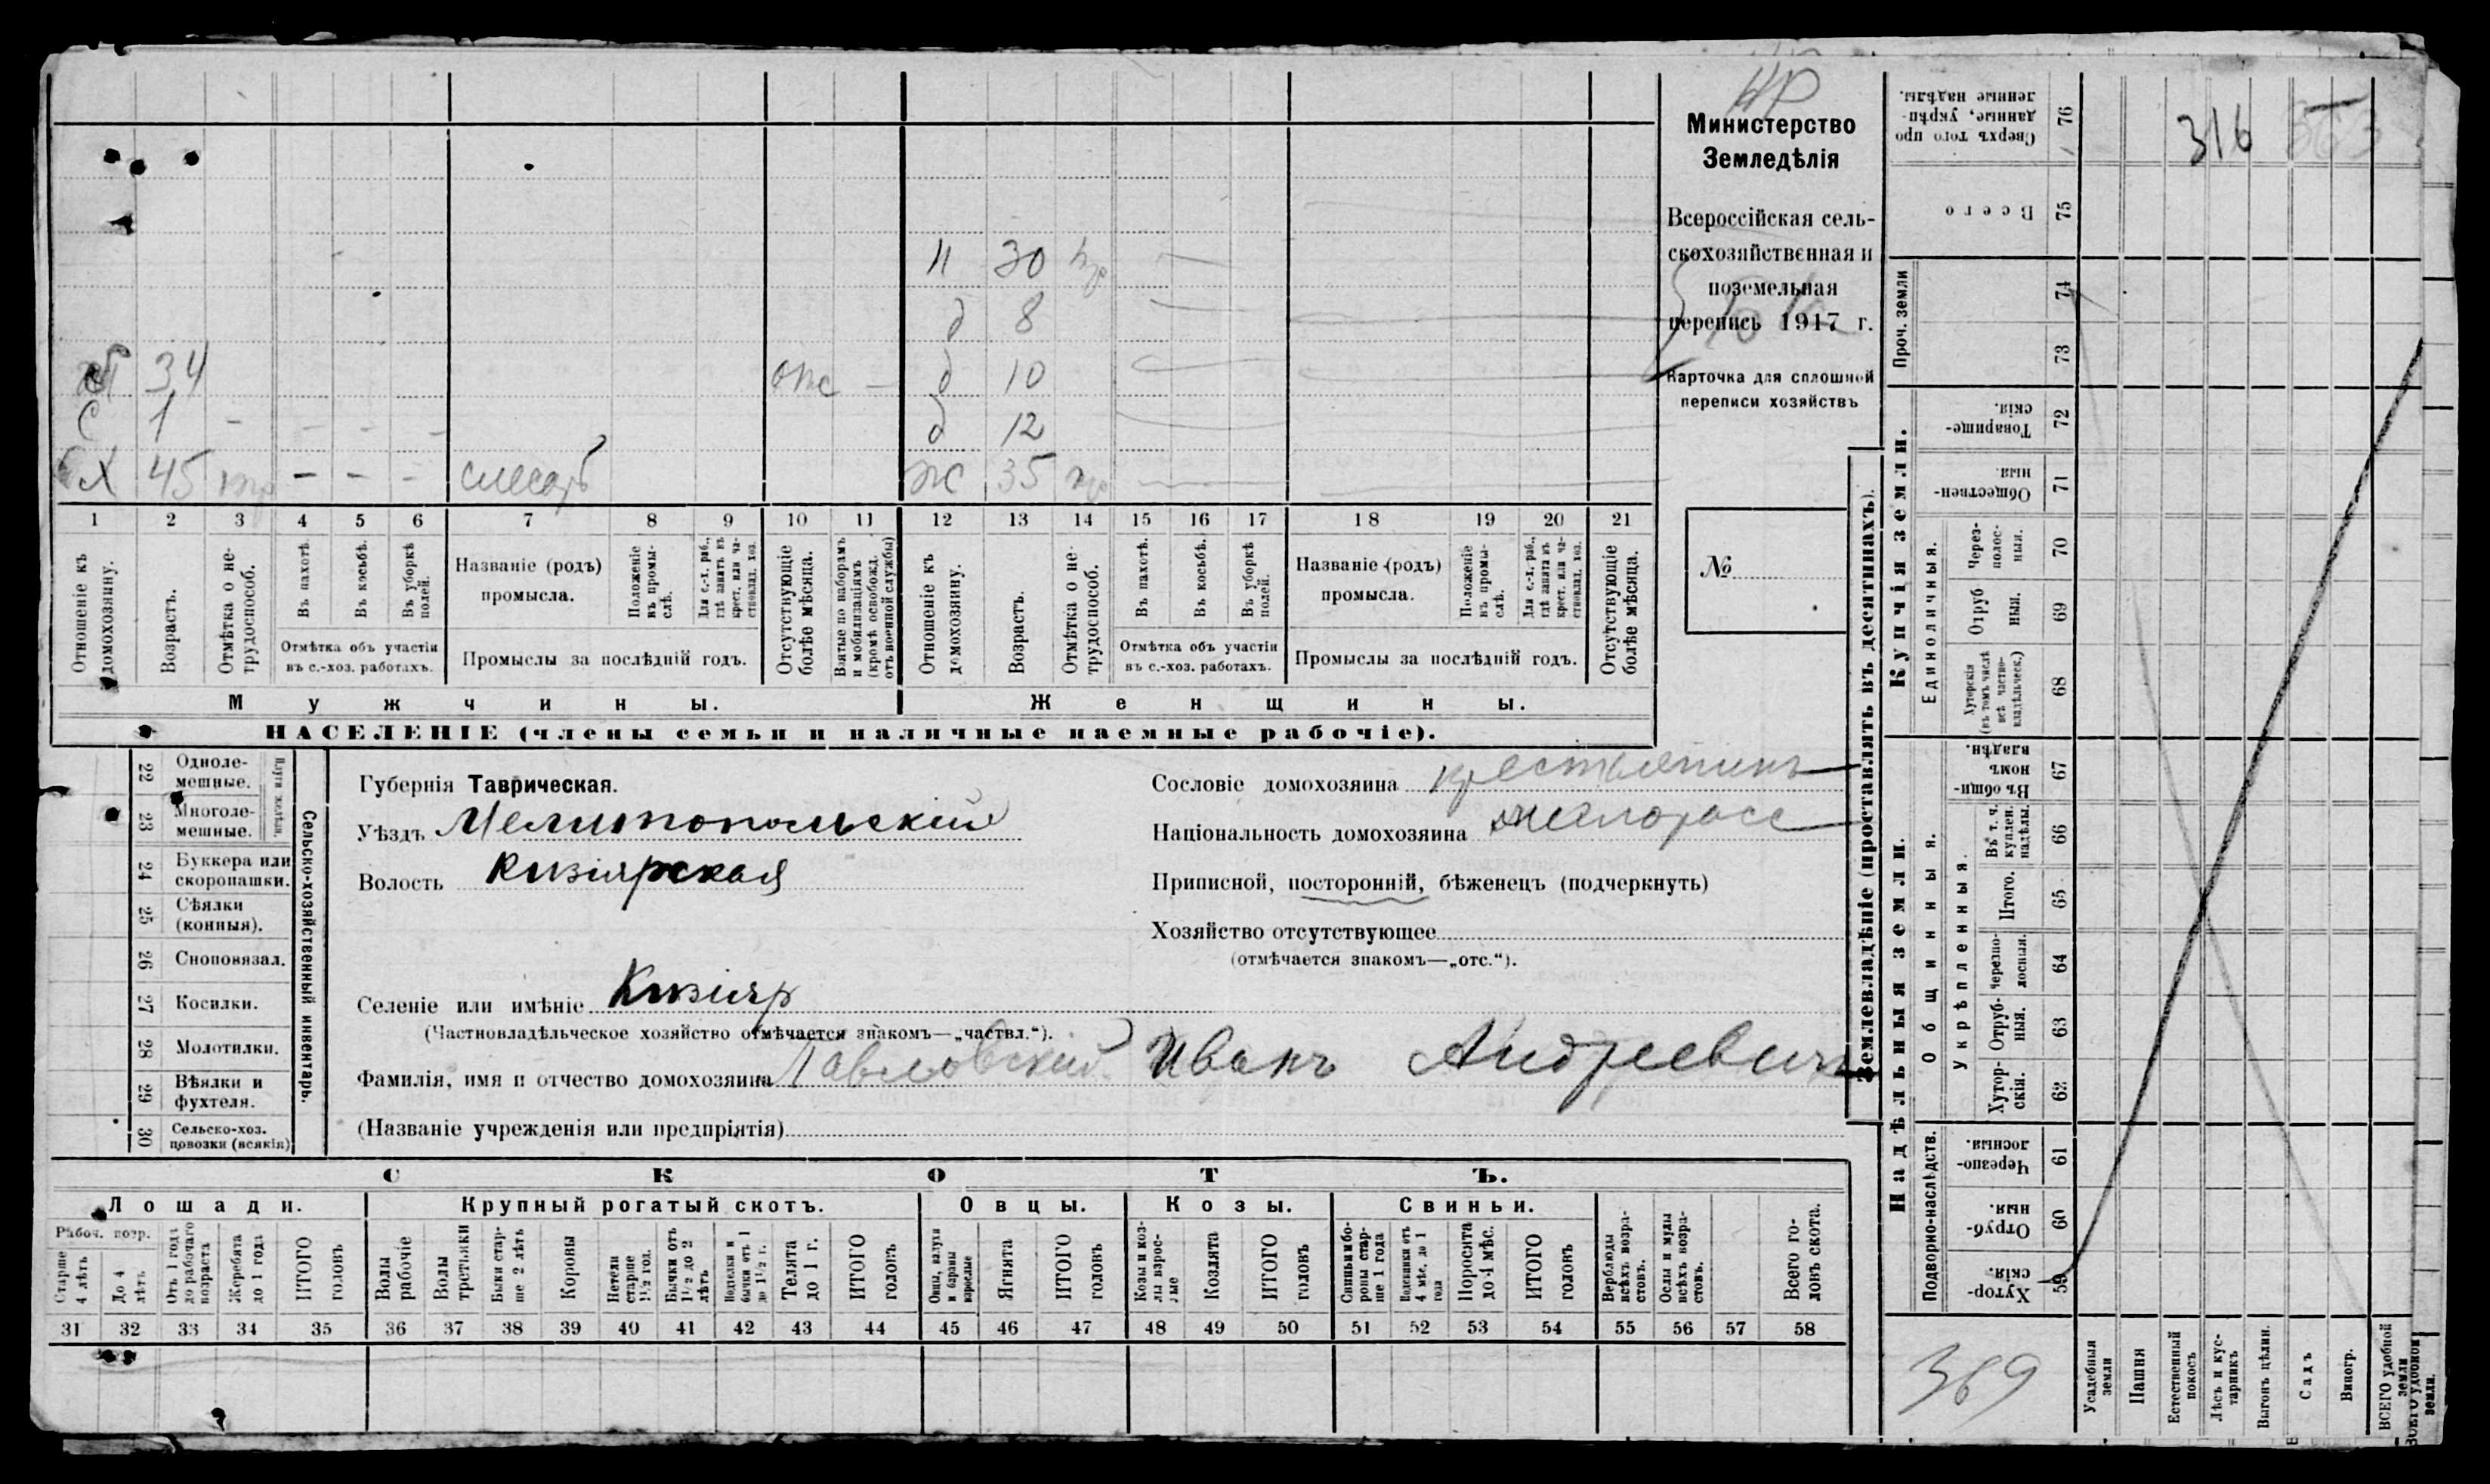 316
Министерство
Земледѣлія
Всероссійская сель-
скохозяйственная и
поземельная
перепись 1917 г.
Карточка для сплошной
переписи хозяйствъ
№
н 30
д 8
34 отс д 10
с 1 - - - - д 12
х 45 - - - слесарь ж 35
1 2 3 4 5 6 7 8 9 10 11 12 13 14 15 16 17 18 19 20 21
Отношеніе къ домохозяину.
Возрастъ.
Отмѣтка о не-трудоспособ.
Въ пахотѣ.
Въ косьбѣ.
Въ уборкѣ полей.
Отмѣтка объ участіи
въ с.-хоз. работахъ.
Названіе (родъ)
промысла.
Положеніе въ промы-слѣ.
Для с.-х. раб., гдѣ занятъ въ крест. или ча-стновлад. хоз.
Промыслы за послѣдній годъ.
Отсутствующіе болѣе мѣсяца.
Взятые по наборамъ и мобилизаціямъ (кромѣ освобожд. отъ военной службы)
Отношеніе къ домохозяину.
Возрастъ.
Отмѣтка о не-трудоспособ.
Въ пахотѣ.
Въ косьбѣ.
Въ уборкѣ полей.
Отмѣтка объ участіи
въ с.-хоз. работахъ.
Названіе (родъ)
промысла.
Положеніе въ промы-слѣ.
Для с.-х. раб., гдѣ занята въ крест. или ча-стновлад. хоз.
Промыслы за послѣдній годъ.
Отсутствующіе болѣе мѣсяца.
Мужчины.
Женщины.
НАСЕЛЕНІЕ (члены семьи и наличные наемные рабочіе).
22 Однолемешные.
23 Многолемешные.
Плуги желѣзн.
24 Буккера или
скоропашки.
25 Сѣялки
(конныя).
26 Сноповязал.
27 Косилки.
28 Молотилки.
29 Вѣялки и
фухтеля.
30 Сельско-хоз.
повозки (всякія)
Сельско-хозяйственный инвентарь.
Губернія Таврическая.
Уѣздъ Мелитопольскій
Волость Кизіярская
Селеніе или имѣніе Кизіяр
(Частновладѣльческое хозяйство отмѣчается знакомъ—„частвл.“).
Фамилія, имя и отчество домохозяина Павловскій Иванъ Андреевич
(Названіе учрежденія или предпріятія)
Сословіе домохозяина крестьянинъ
Національность домохозяина малоросс
Приписной, посторонній, бѣженецъ (подчеркнуть)
Хозяйство отсутствующее
(отмѣчается знакомъ—„отс.“).
СКОТЪ.
Лошади.
Крупный рогатый скотъ.
Овцы.
Козы.
Свиньи.
Рабоч. возр.
Старше 4 лѣтъ
До 4 лѣтъ
Отъ 1 года до рабочаго возраста
Жеребята до 1 года
ИТОГО головъ
Волы рабочіе
Волы третьяки
Быки стар-ше 2 лѣтъ
Коровы
Нетели старше 1½ год.
Бычки отъ 1½ до 2 лѣтъ
Телята до 1 г.
ИТОГО головъ
Ягнята
ИТОГО головъ
Козы и коз-лы взрос-лые
Козлята
ИТОГО головъ
Поросята до 4 мѣс.
ИТОГО головъ
Верблюды всѣхъ возра-стовъ.
Ослы и мулы всѣхъ возра-стовъ.
Всего го-ловъ скота.
31 32 33 34 35 36 37 38 39 40 41 42 43 44 45 46 47 48 49 50 51 52 53 54 55 56 57 58
Землевладѣніе (проставлять въ десятинахъ).
Сверхъ того про
данные, укрѣп-
ленные надѣлы.
76
Всего 75
Проч. земли
74
73
Купчія земли.
Товарище-
скія.
72
Обществен-
ныя.
71
Единоличныя.
Через-
полос-
ныя.
70
Отруб
ныя.
69
Хуторскія
(въ томъ числѣ
всѣ частно-
владѣльческ.)
68
Надѣльныя земли.
Общинныя.
Въ общи-
номъ
владѣн.
67
Въ т. ч.
куплен.
надѣлы.
66
Укрѣпленныя.
Итого.
65
черезпо-
лосныя.
64
Отруб-
ныя.
63
Хутор-
скія.
62
Подворно-наслѣдств.
Черезпо-
лосныя.
61
Отруб-
ныя.
60
Хутор-
скія.
59
369
Усадебныя земли
Пашня
Естественный покосъ
Лѣсъ и кус-тарникъ
Выгонъ цѣлин.
Садъ
Виногр.
ВСЕГО удобной земли